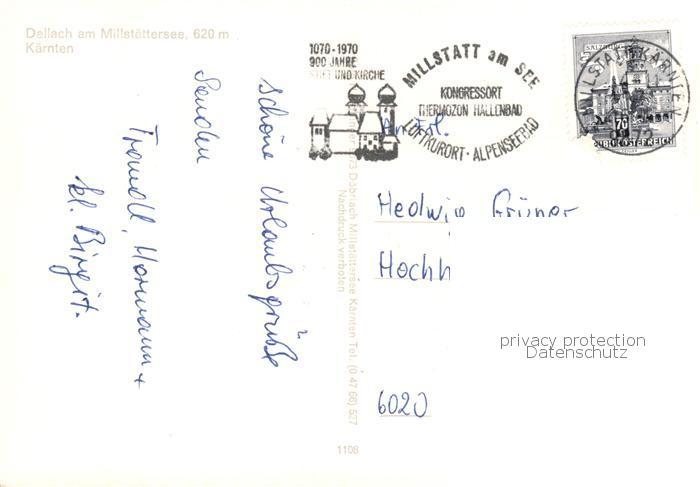 Dellach am Millstättersee, 620 m
Kärnten
1070-1970
900 JAHRE
STIFT UND KIRCHE
MILLSTATT am SEE
KONGRESSORT
THERMOZON HALLENBAD
LUFTKURORT - ALPENSEEBAD
SALZBURG
MILLSTATT, KÄRNTEN
REPUBLIK ÖSTERREICH
schöne Urlaubsgrüße
Senden
Traudl, Hermann +
kl. Birgit.
An Frl.
Hedwig Grüner
Hochh
6020
Döbriach Millstättersee Kärnten Tel. (0 47 66) 527
Nachdruck verboten
1108
privacy protection
Datenschutz